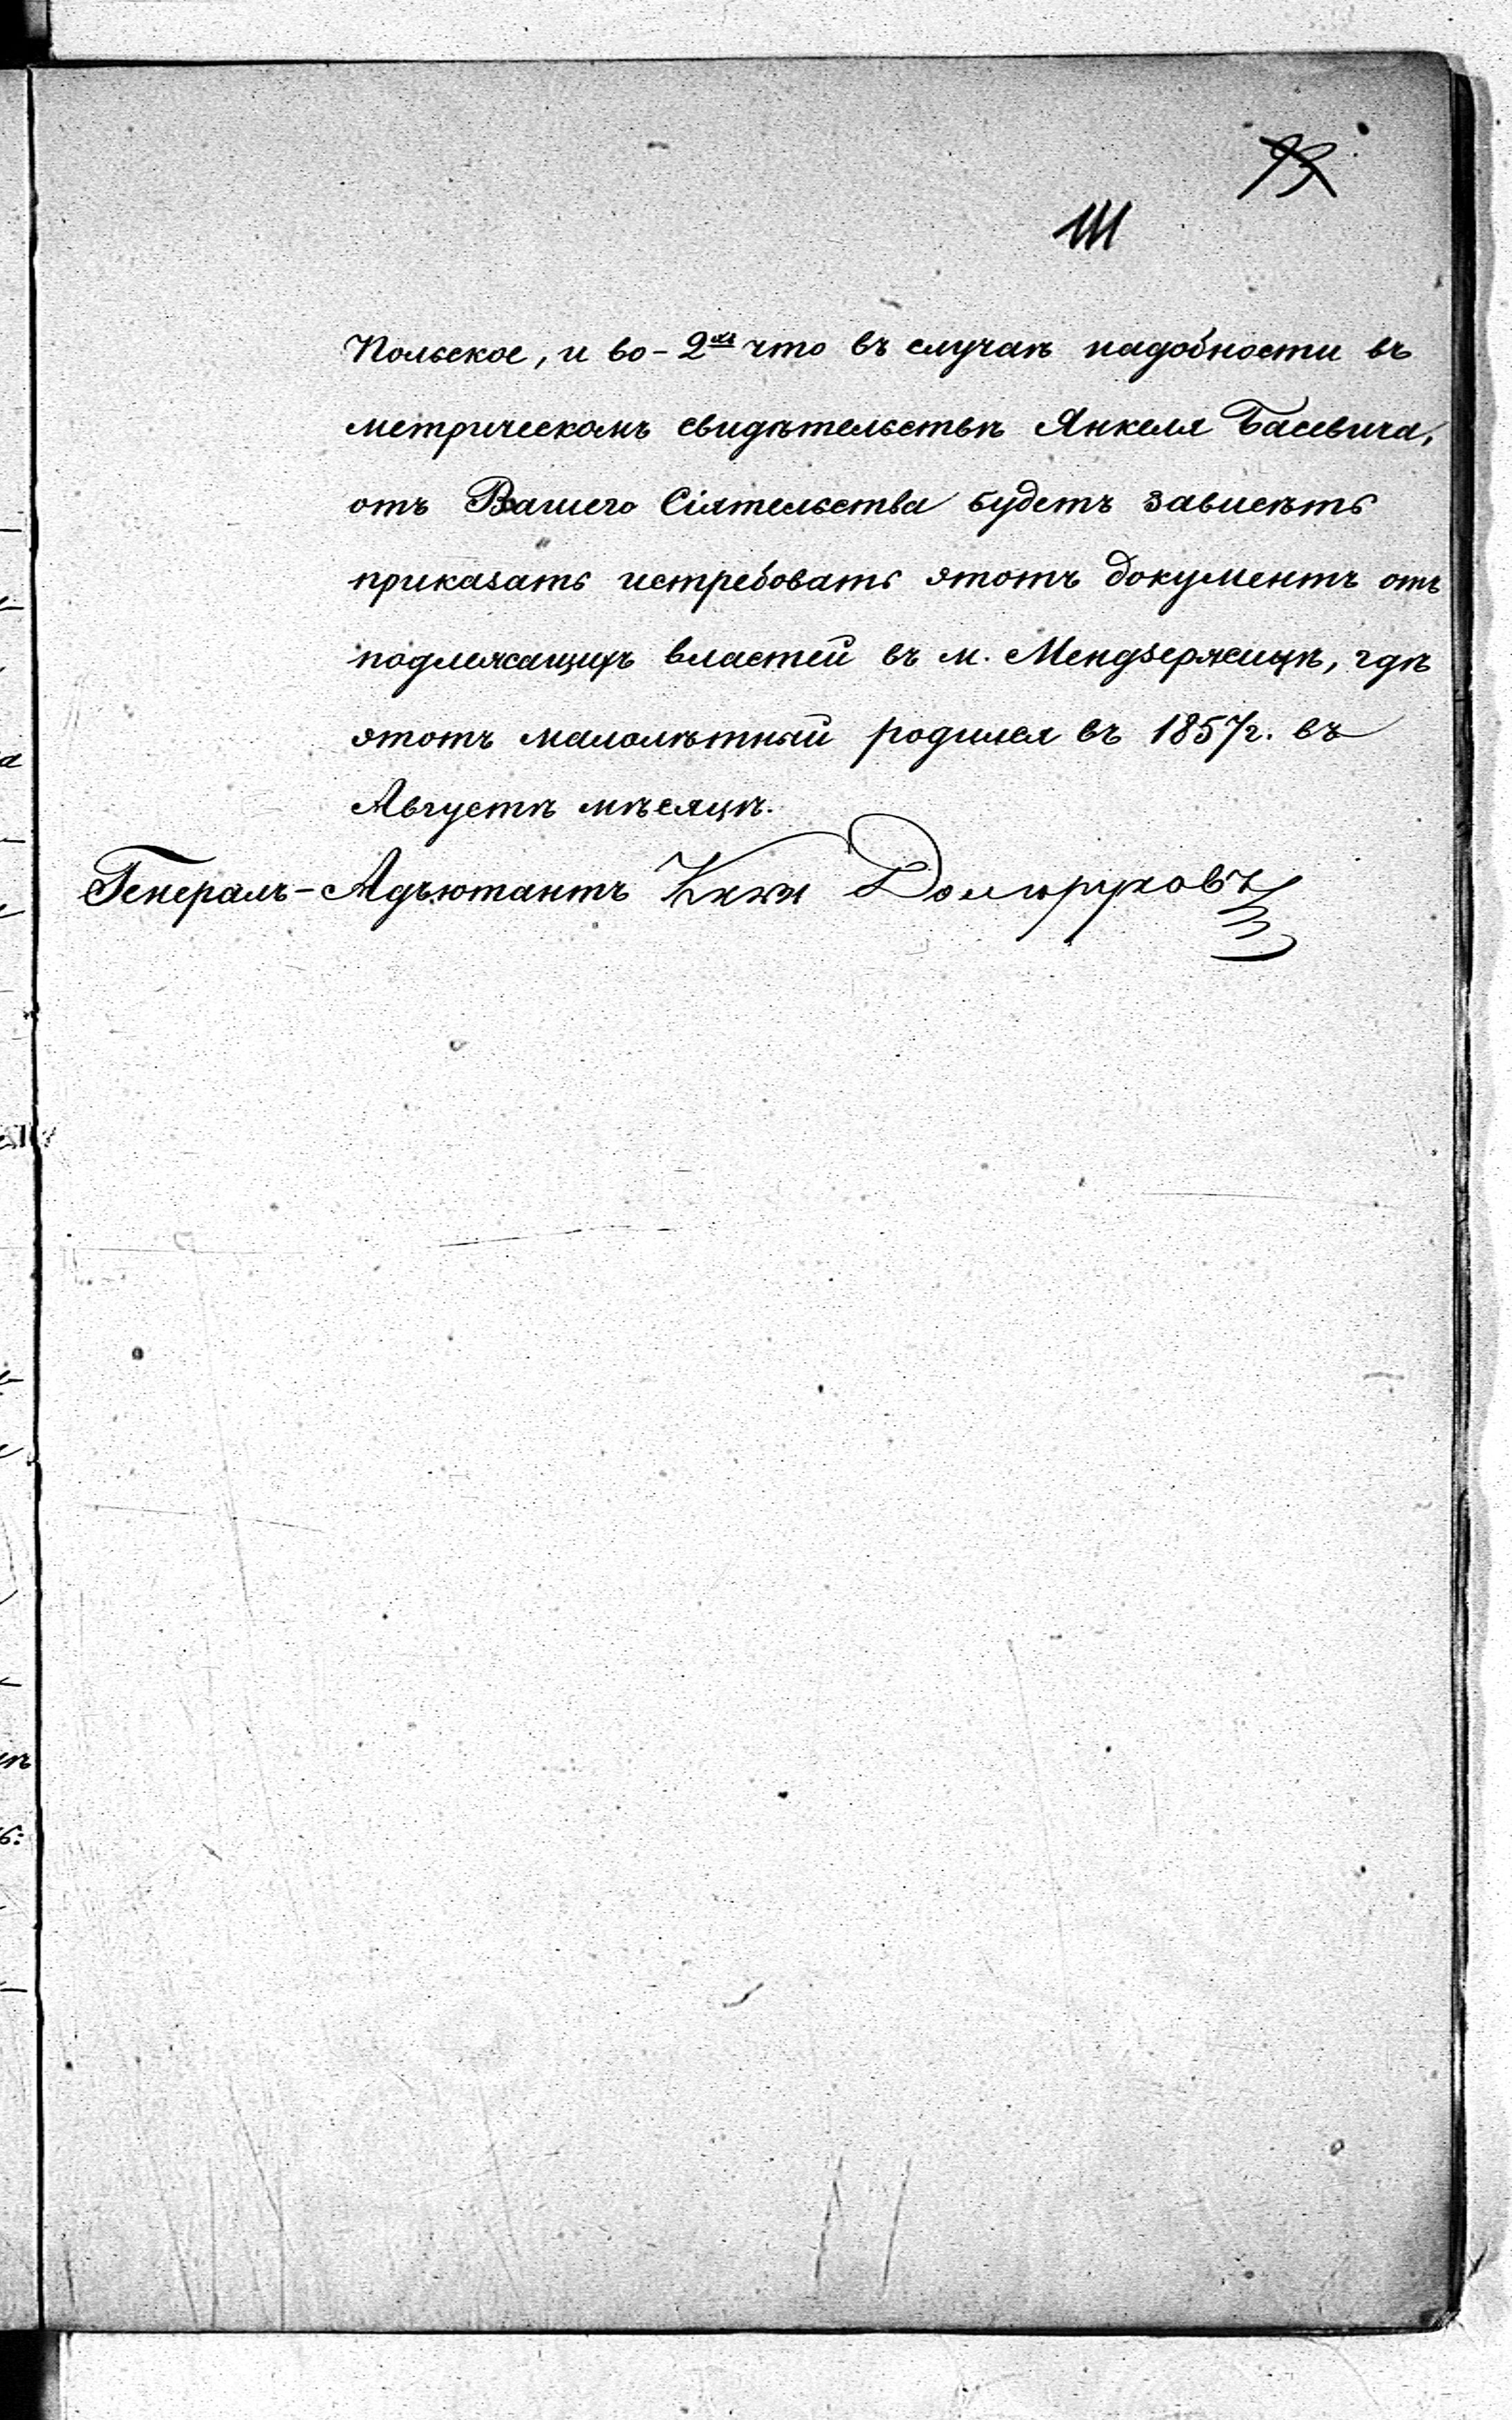 111
Польское, и во-2хъ что въ случаѣ надобности въ
метрическомъ свидѣтельствѣ Янкеля Басевича,
отъ Вашего Сіятельства будетъ зависѣть
приказать истребовать этотъ документъ отъ
подлежащихъ властей въ м. Мендзержицѣ, гдѣ
этотъ малолѣтный родился въ 1857 г. въ
Августѣ мѣсяцѣ.
Генералъ-Адъютантъ Князь Долгоруковъ